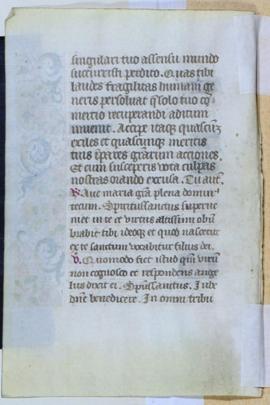 singulari tuo assensu mundo
succurristi perdito. Quas tibi
laudes fragilitas humani ge
neris persoluat q̃ solo tuo cõ
mertio recuperandi aditum
inuenit. Accipe itaq; quascũq;
exiles et quascunq; meritis
tuis ĩpares gratiarum acciones.
Et cum susceperis vota culpas
nostras orando excusa. Tu aut̃.
R. Aue maria grã plena dominus
tecum. Spiritussanctus superue
niet in te et virtus altissimi obũ
brabit tibi ideoq; et quod nascetur
ex te sanctum vocabitur filius dei.
V. Quomodo fiet istud qm̃ virũ
non cognosco et respondens ange
lus dixit ei. Spũssanctus. Iube
dñe benedicere. In omni tribu